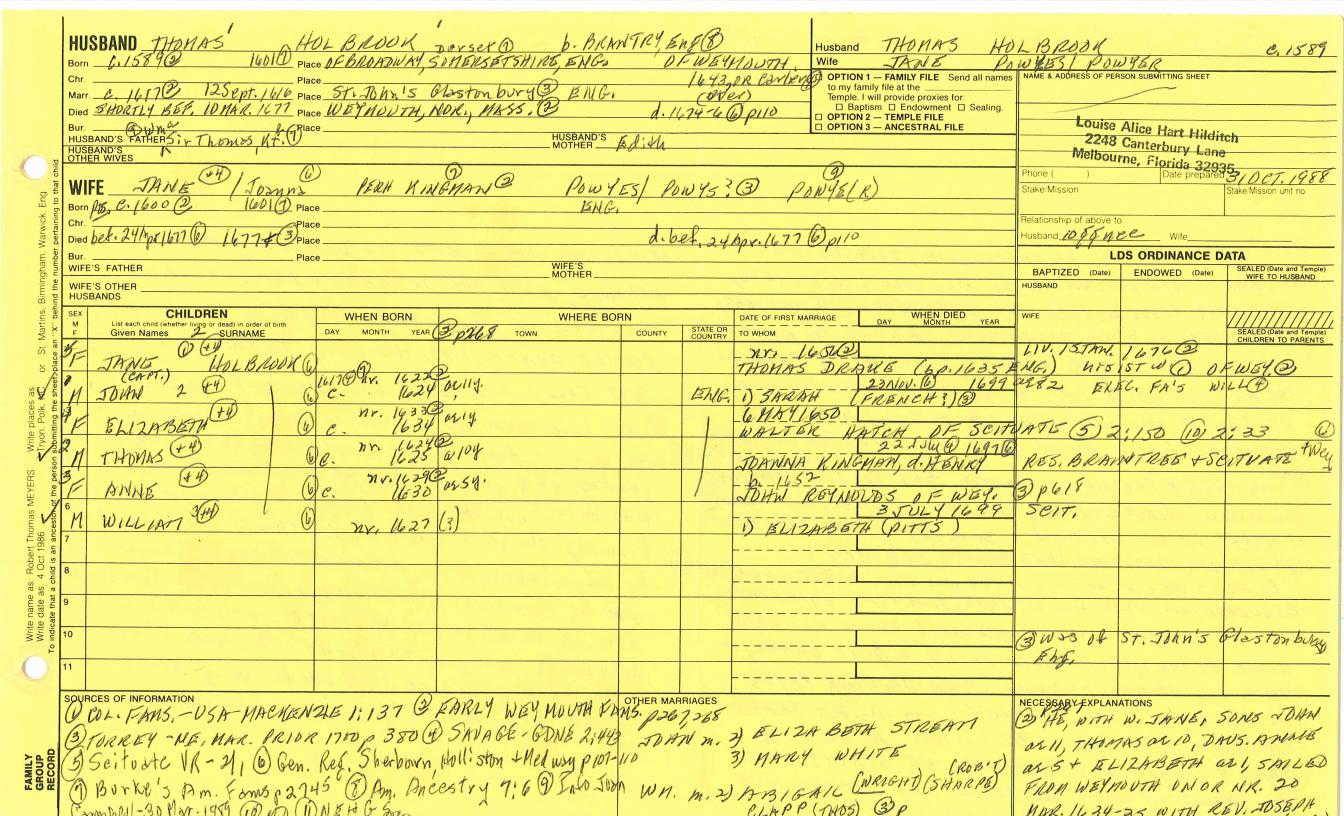 HUSBAND THOMAS' HOLBROOK Dorset (7) b. BRANTRY, Eng (8)
Born c. 1589 (2) 1601 (7) Place OF BROADWAY, SOMERSETSHIRE, ENG. OF WEYMOUTH,
Chr. Place 1643, OR earlier
Marr. c. 1617 (2) 12 Sept. 1616 Place St. John's Glastonbury (3) ENG. (over)
Died SHORTLY BEF. 10 MAR. 1677 Place WEYMOUTH, NOR., MASS. (2) d. 1674-6 (6) p110
Bur. Place
HUSBAND'S FATHER Sir Thomas, Kt. (7) HUSBAND'S MOTHER Edith
HUSBAND'S OTHER WIVES
WIFE JANE (+4) / Joanna (6) PERH KINGMAN (2) (7) POWYES / POWYS? (3) POWYE(R) (9)
Born c. 1600 (2) 1601 (7) Place ENG.
Chr. Place
Died bef. 24 Apr 1677 (6) 1677+ (3) Place d. bef. 24 Apr. 1677 (6) p110
Bur. Place
WIFE'S FATHER WIFE'S MOTHER
WIFE'S OTHER HUSBANDS
Husband THOMAS HOLBROOK c. 1589
Wife JANE POWYES / POWYER
OPTION 1 — FAMILY FILE Send all names
to my family file at the
Temple. I will provide proxies for
Baptism Endowment Sealing.
OPTION 2 — TEMPLE FILE
OPTION 3 — ANCESTRAL FILE
NAME & ADDRESS OF PERSON SUBMITTING SHEET
Louise Alice Hart Hilditch
2248 Canterbury Lane
Melbourne, Florida 32935
Phone ( ) Date prepared 31 OCT. 1988
Stake/Mission Stake/Mission unit no
Relationship of above to
Husband Wife
LDS ORDINANCE DATA
BAPTIZED (Date) ENDOWED (Date) SEALED (Date and Temple) WIFE TO HUSBAND
HUSBAND
WIFE
SEALED (Date and Temple) CHILDREN TO PARENTS
SEX M F
CHILDREN
List each child (whether living or dead) in order of birth
Given Names 2 SURNAME
WHEN BORN
DAY MONTH YEAR (3) p268
WHERE BORN
TOWN COUNTY STATE OR COUNTRY
DATE OF FIRST MARRIAGE
TO WHOM
WHEN DIED
DAY MONTH YEAR
F JANE (1) (+4) HOLBROOK (6) nr. 1656 (2) LIV. 15 JAN. 1676 (2)
THOMAS DRAKE (bp. 1635 ENG.) his 1st W (1) OF WEY (2)
M (CAPT.) JOHN 2 (+4) (6) 1617 (9) nr. 1622 (2) c. 1624 or 11y. ENG. 23 NOV. (6) 1699
1) SARAH (FRENCH?) (3) ELEC. FA'S WILL (4)
F ELIZABETH (+4) (6) nr. 1633 (2) c. 1634 or 1y 6 MAY 1650
WALTER HATCH OF SCITUATE (5) 2:150 (10) 2:33 (6)
M THOMAS (+4) (6) nr. 1624 (2) c. 1625 or 10y 22 July (9) 1697 (6)
JOANNA KINGMAN, d. HENRY RES. BRAINTREE + SCITUATE + Wey
F ANNE (+4) (6) nr. 1629 (2) c. 1630 or 5y. b. 1652
JOHN REYNOLDS OF WEY. (3) p618
6 M WILLIAM (+4) (6) nr. 1627 (?) 3 JULY 1699 SCIT.
1) ELIZABETH (PITTS)
7
8
9
10 (3) was of St. John's Glastonbury
Eng.
11
SOURCES OF INFORMATION
(1) COL. FAMS. – USA – MACKENZIE 1:137 (2) EARLY WEYMOUTH FAMS. p267,268
(3) TORREY – NE, MAR. PRIOR 1700 p 380 (4) SAVAGE – GDNE 2:443
(5) Scituate VR – (6) Gen. Reg. Sherborn, Holliston + Medway p 107-110
(7) Burke's Am. Fams p2745 (8) Am. Ancestry 9:6 (9) Info Joan
30 Mar. 1989 (10) (11) NEHGS
OTHER MARRIAGES
JOHN m. 2) ELIZABETH STREAM
3) MARY WHITE
WM. m. 2) ABIGAIL (WRIGHT) (SHARPE) (ROB'T)
CLAPP (THOS) (3) p
NECESSARY EXPLANATIONS
(2) HE, WITH W. JANE, SONS JOHN
ae 11, THOMAS ae 10, DAUS. ANNE
ae 5 + ELIZABETH ae 1, SAILED
FROM WEYMOUTH ON OR NR. 20
MAR. 1634-35 WITH REV. JOSEPH
FAMILY GROUP RECORD
Write name as: Robert Thomas MEYERS Write places as: Tryon, Polk, or St Martins, Birmingham, Warwick, Eng
Write date as: 4 Oct 1986
To indicate that a child is an ancestor of the person submitting the sheet, place an "X" behind the number pertaining to that child